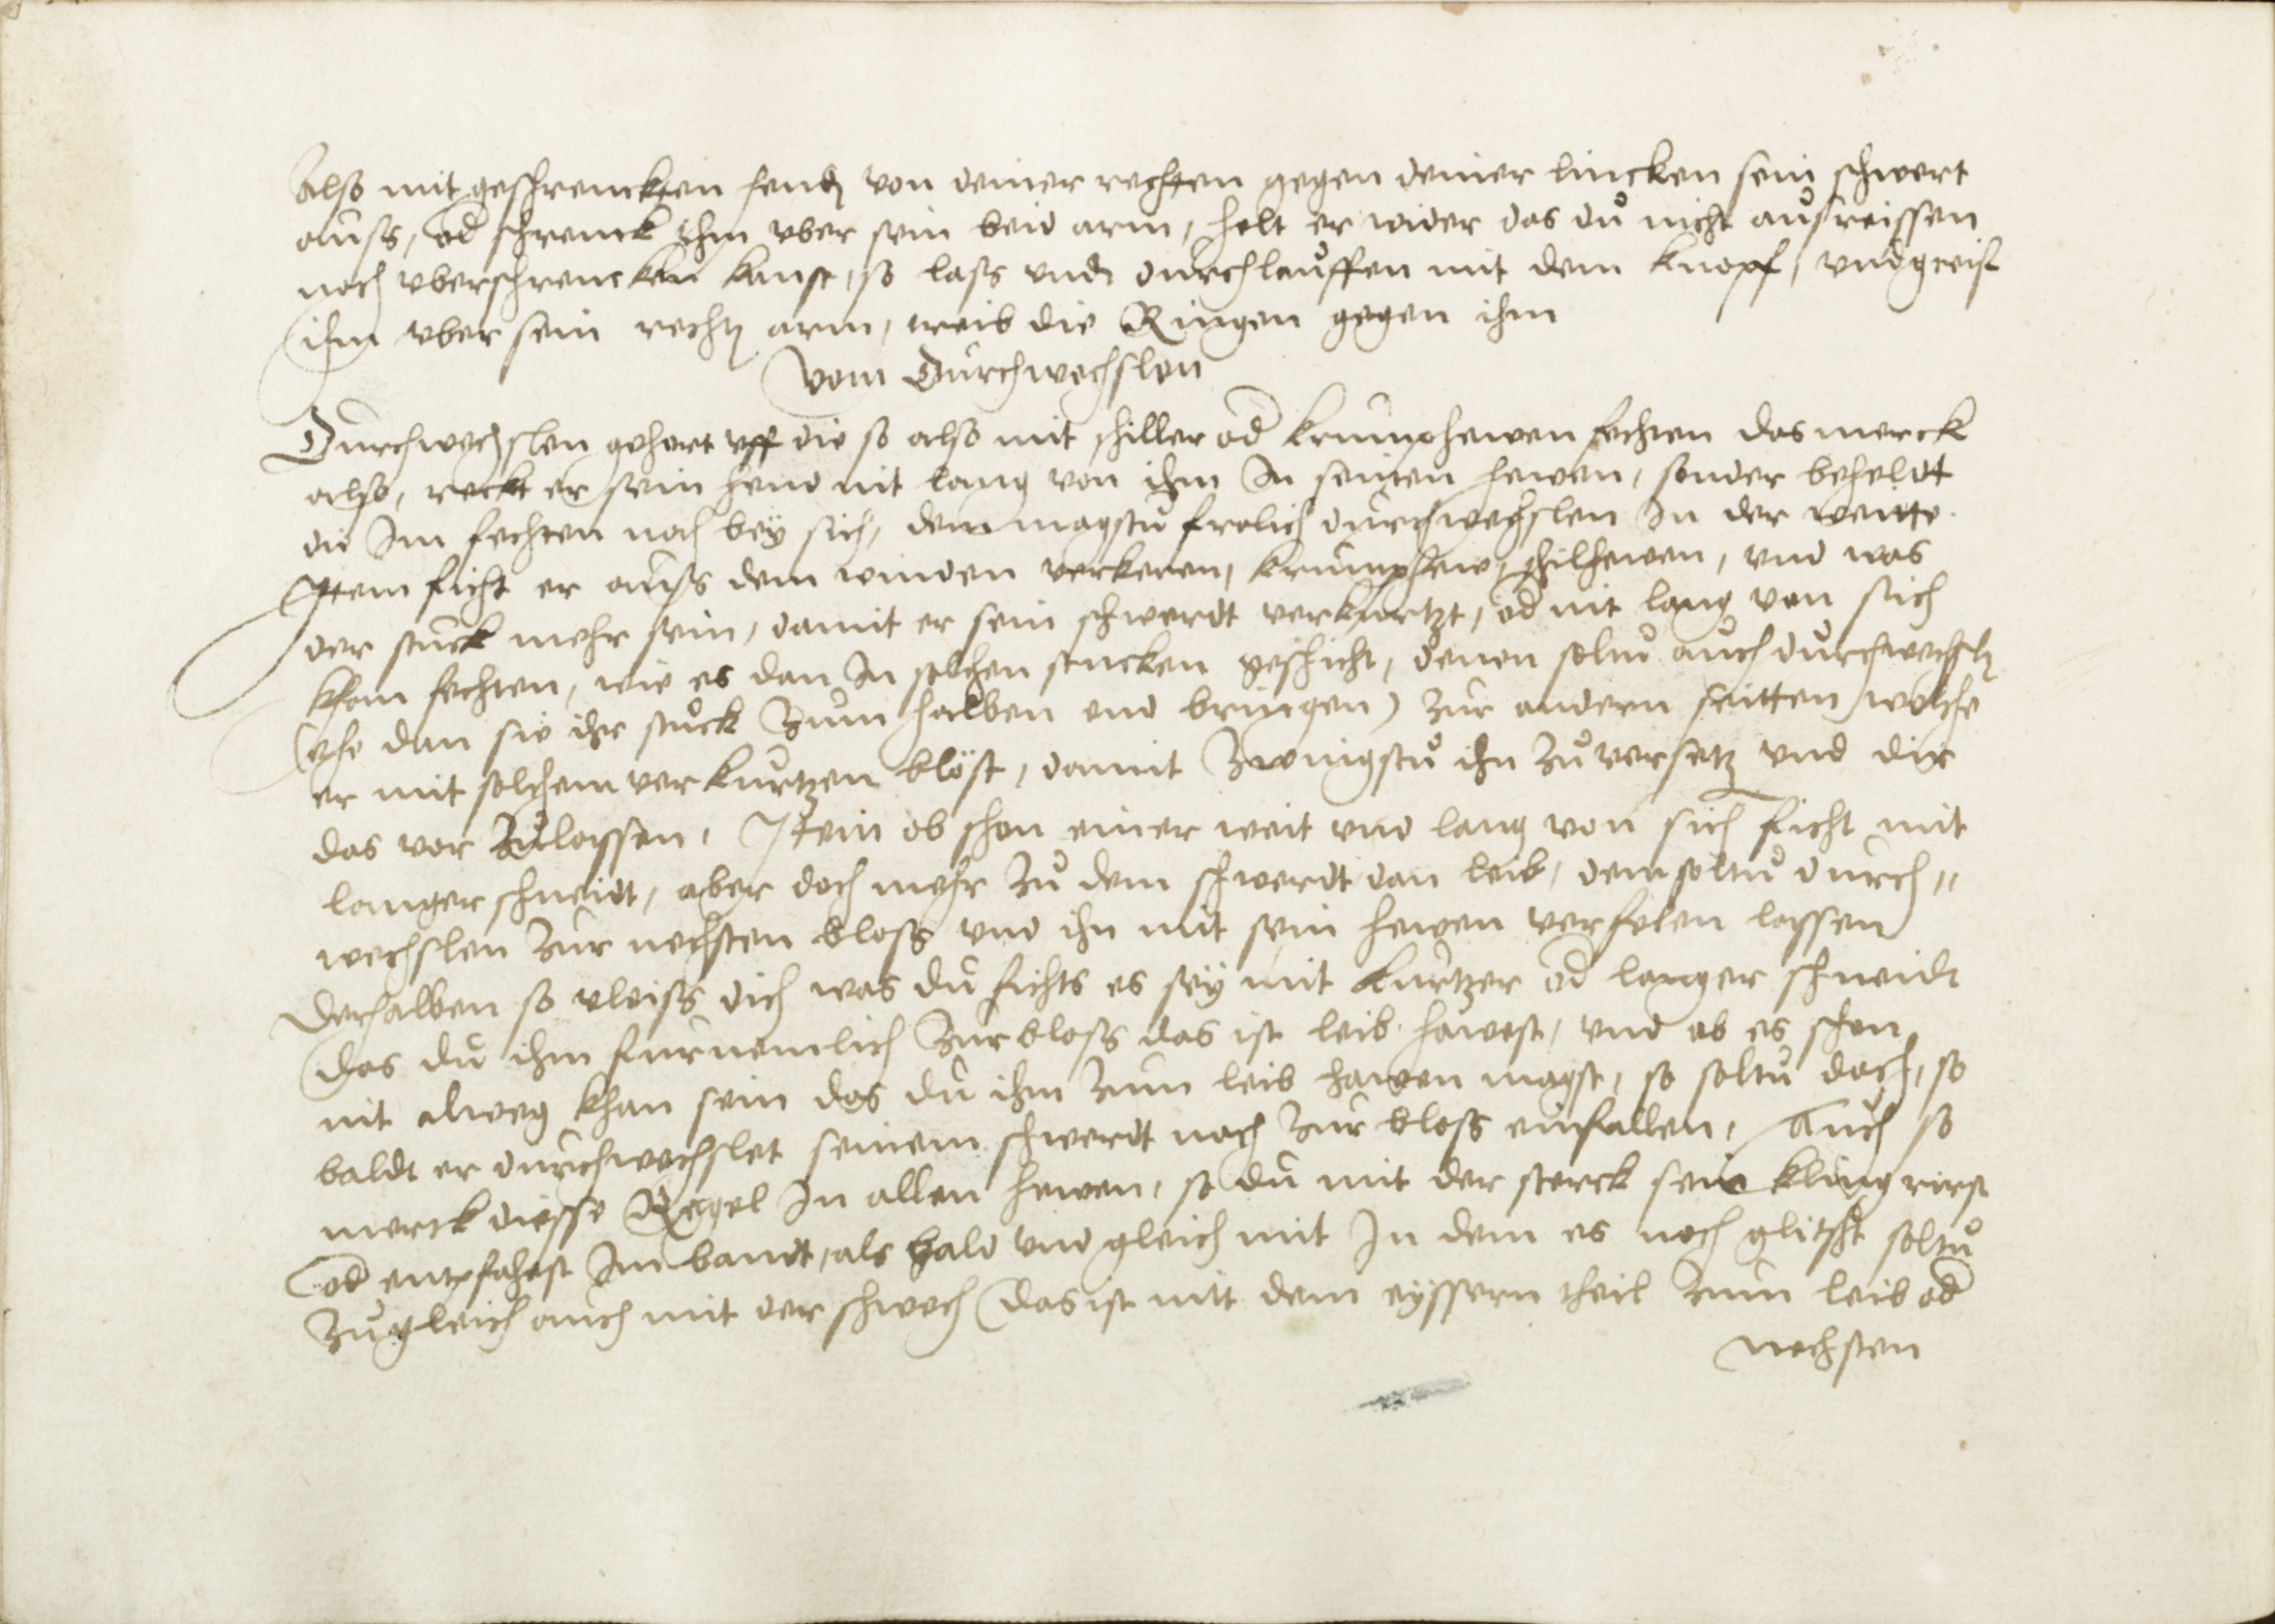 Also mit geschrenckten hend von deiner rechten gegen deiner lincken sein schwert
auss, od schrenck ihm vber sein beid arm, helt er wider das du nicht ausreissen
noch vberschrencken kanst, so lass vnd durchlauffen mit dem knopf, vnd greif
ihm vber sein recht arm, treib die Ringen gegen ihm
Vom Durchwechslen
Durchwechslen gehort vff die so also mit schiller od krumphewen fechten das merck
also, reckt er sein hend nit lang von ihm In seinen hewen, sonder beheldt
die Im fechten noch bey sich, dem magstu frolich durchwechslen In der weitte.
Item ficht er auss dem winden verkeren, krumphew, schilhewen, vnd was
der stuck mehr sein, damit er sein schwerdt verkurtzt, od nit lang von sich
khan fechten, wie es dan In solchen stucken geschicht, denen soltu auch durchwechsln
(ehe dan sie ihr stuck zum halben end bringen) zur andern seitten welche
er mit solchem verkurtzen blöst, damit zwingstu ihn zu versetz vnd dir
das vor zulassen, Item ob schon einer weit vnd lang von sich ficht mit
langer schneidt, aber doch mehr zu dem schwerdt dan leib, dem soltu durch„
wechslen zur nechsten bloss vnd ihn mit sein hewen verfelen lassen
Derhalben so vleiss dich was du fichts es sey mit kurtzer od langer schneidt
das du ihm furnemlich zur bloss das ist leib hawest, vnd ob es schon
nit alweg khan sein das du ihm zum leib hawen magst, so soltu doch, so
baldt er durchwechslet seinem schwerdt nach zur bloss einfallen, Auch so
merck diesse Regel In allen hewen, so du mit der sterck sein kling rirst
od entpfahest Im bandt, als bald vnd gleich mit In dem es noch glitscht soltu
zugleich auch mit der schwech (das ist mit dem eyssern theil zum leib od
nechsten